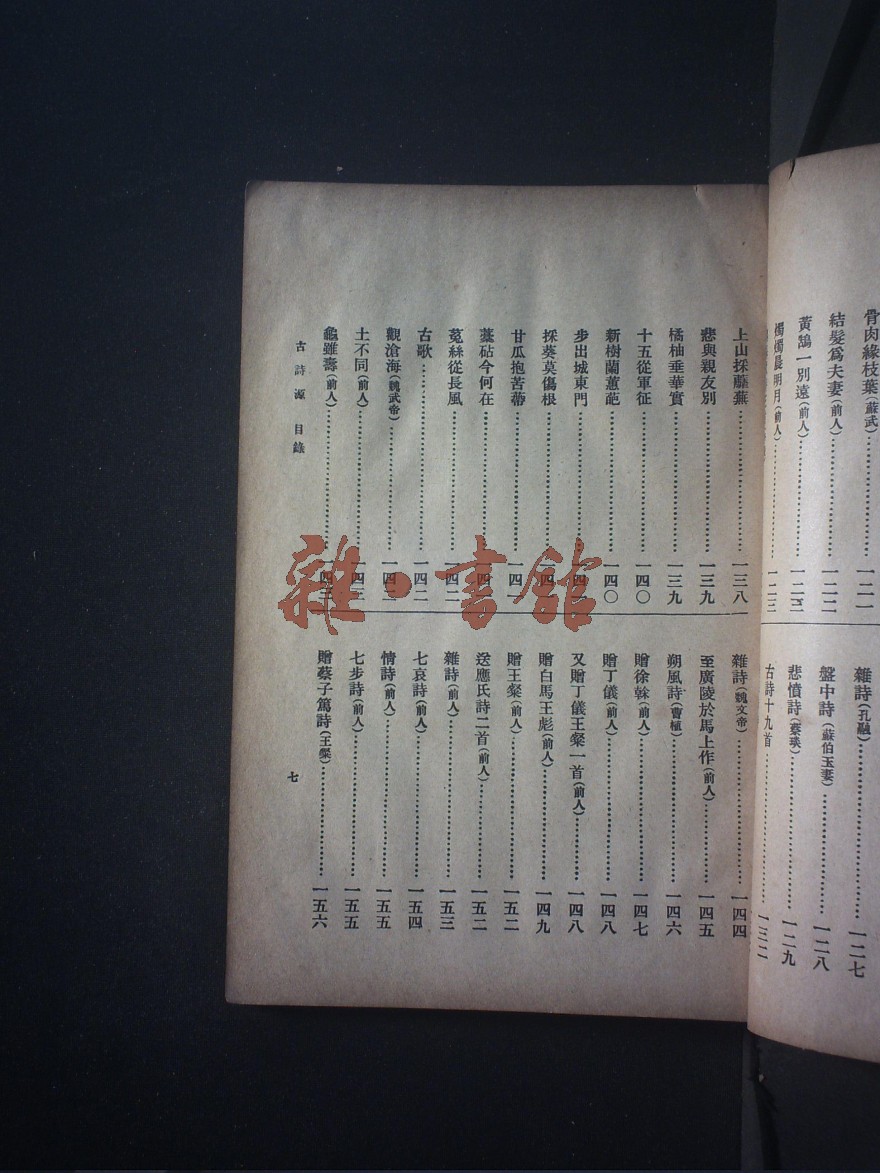 骨肉緣枝葉(蘇武)……一二一
結髮爲夫妻(前人)……一二二
黃鵠一別遠(前人)……一二三
燭燭晨明月(前人)……一二三
雜詩(孔融)……一二七
盤中詩(蘇伯玉妻)……一二八
悲憤詩(蔡琰)……一二九
古詩十九首……一三二
上山採蘼蕪……一三八
悲與親友別……一三九
橘柚垂華實……一三九
十五從軍征……一四〇
新樹蘭蕙葩……一四〇
步出城東門……一四一
採葵莫傷根……一四
甘瓜抱苦蔕……一四一
藁砧今何在……一四
菟絲從長風……一四二
古歌……一四二
觀滄海(魏武帝)……一四二
土不同(前人)……一四三
龜雖壽(前人)……一四三
雜詩(魏文帝)……一四四
至廣陵於馬上作(前人)……一四五
朔風詩(曹植)……一四六
贈徐幹(前人)……一四七
贈丁儀(前人)……一四八
又贈丁儀王粲一首(前人)……一四八
贈白馬王彪(前人)……一四九
贈王粲(前人)……一五二
送應氏詩二首(前人)……一五二
雜詩(前人)……一五三
七哀詩(前人)……一五四
情詩(前人)……一五五
七步詩(前人)……一五五
贈蔡子篤詩(王粲)……一五六
古詩源 目錄
七
雜·書館